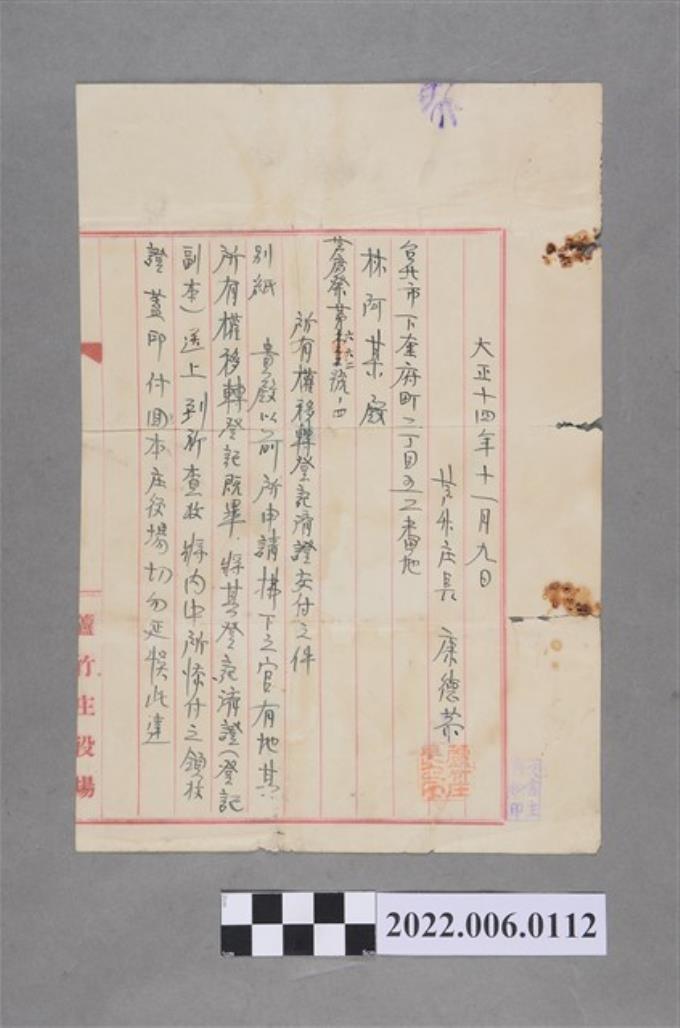 大正十四年十一月九日
芦竹庄長 康德恭
台北市下奎府町二丁目
番地
林阿某殿
號ノ四
所有權移轉登記濟證交付之件
別紙 貴殿以前所申請拂下之官有地其
所有權移轉登記既畢、將其登記濟證(登記
副本)送上到祈查收將內中所添付之領收
證蓋印付回本庄役場切勿延悞此達
蘆竹庄役場
蘆竹庄
長之印
2022.006.0112